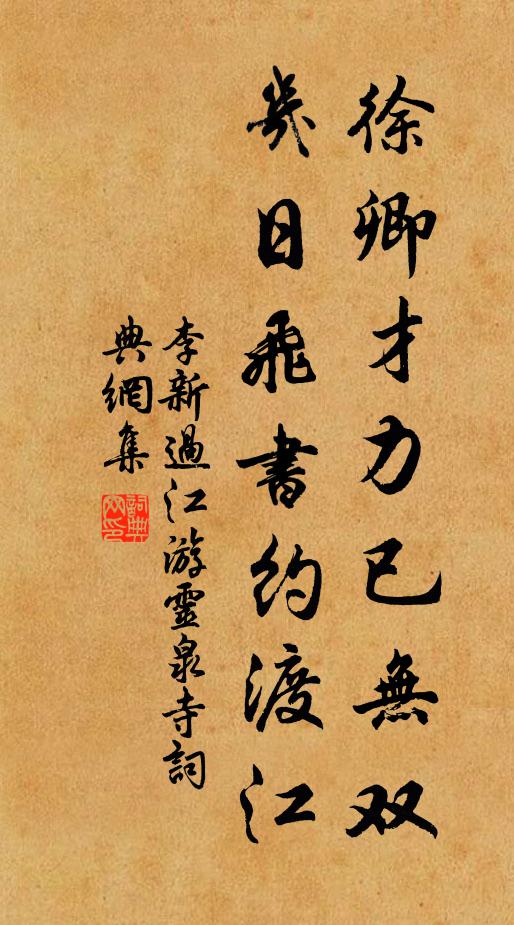 徐卿才力已無双
幾日飛書約渡江
李新過江游靈泉寺詞
典網集
詞典网印